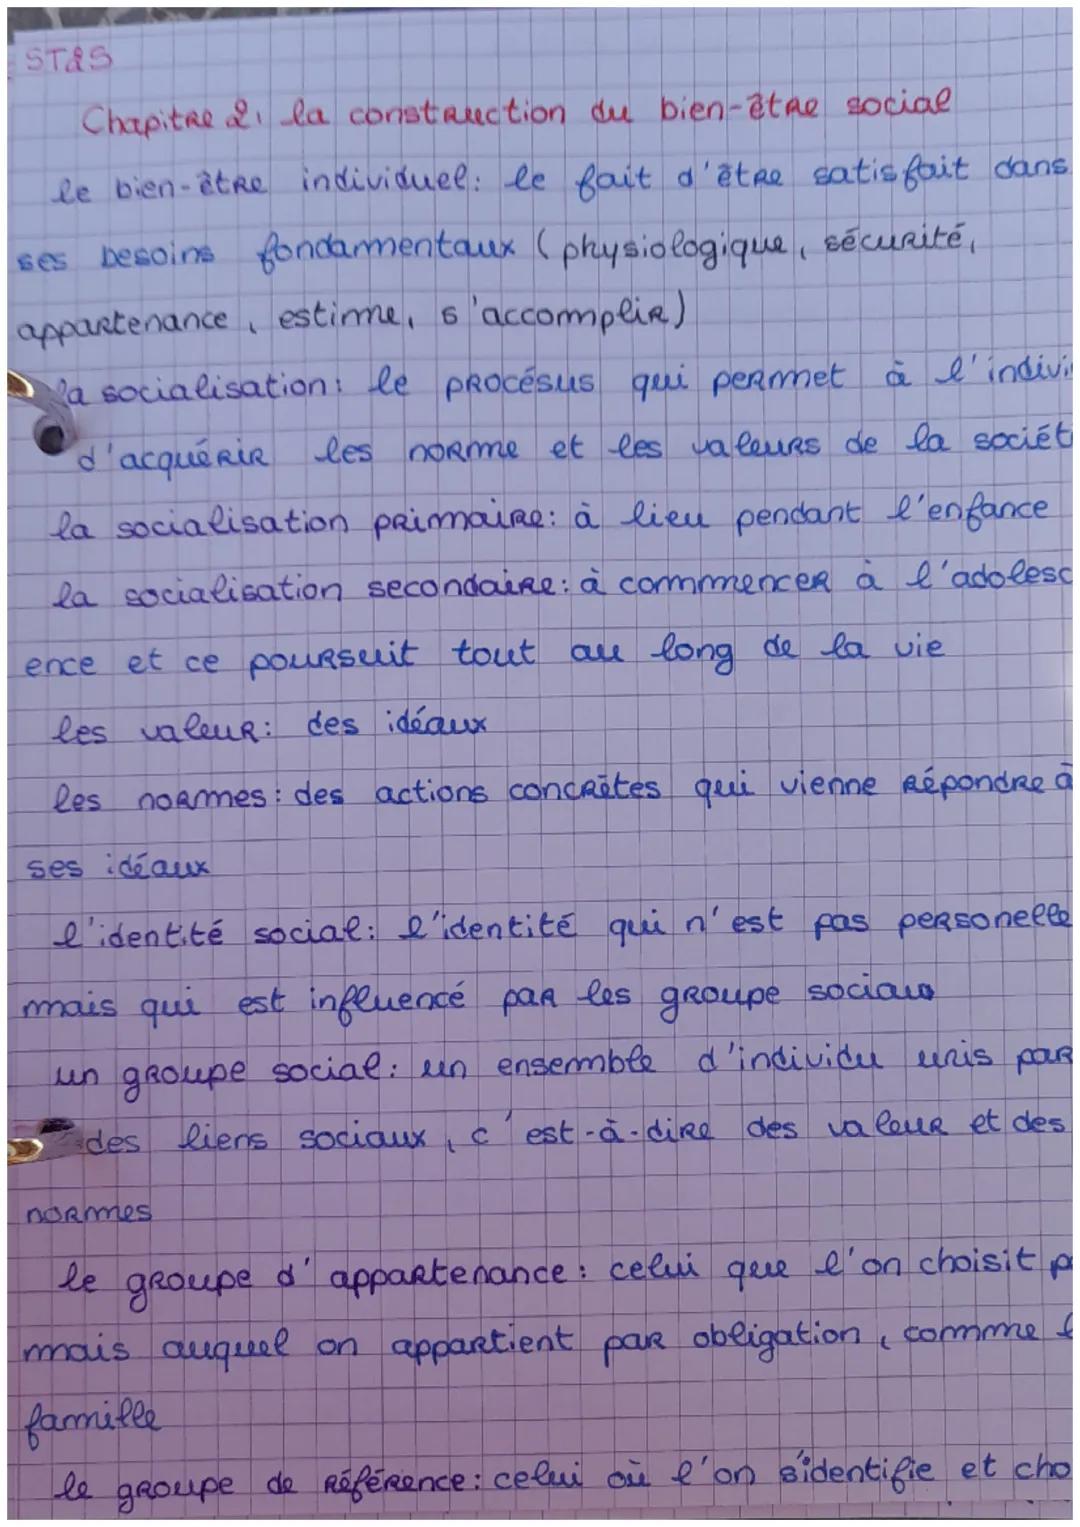 ST2S
Chapitre 2: la construction du bien-être social
le bien-être individuel: le fait d'être satisfait dans
ses besoins fondamentaux (physiologique, sécurité,
appartenance, estime, s'accomplir)
la socialisation: le procésus qui permet à l'indivi
d'acquérir les norme et les valeurs de la sociét
la socialisation primaire: à lieu pendant l'enfance
la socialisation secondaire: à commencer à l'adolesc
ence et ce poursuit tout au long de la vie
les valeur: des idéaux
les normes: des actions concrètes qui vienne répondre à
ses idéaux
l'identité social: l'identité qui n'est pas personelle
mais qui est influencé par les groupe sociaux
un groupe social: un ensemble d'individu unis par
des liens sociaux, c'est-à-dire des valeur et des
normes
le groupe d'appartenance: celui que l'on choisit p
mais auquel on appartient par obligation, comme l
famille
le groupe de référence: celui où l'on s'identifie et cho